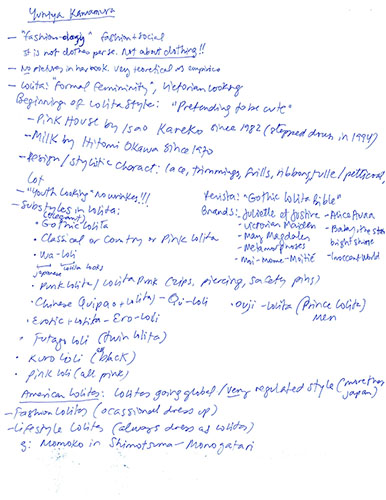 Yuniya Kawamura
- "fashion-ology" fashion + social
It is not clothes per se. Not about clothing!!
- No pictures in her book. very teoretical vs empirico
- Lolita: "formal femininity", victorian looking
Beginnings of Lolita Style: "Pretending to be cute"
- Pink House by Isao Kaneko since 1982 (stopped dress in 1994)
- Milk by Hitomi Okawa since 1970
- Design/stylistic charact: lace, trimmings, frills, ribbons, tulle/petticoat,
Lot
- "Youth looking" No wrinkles!!!
- Substyles in Lolita:
(elegant)
• Gothic Lolita
• Classical or Country or Pink Lolita
• Wa-Loli
japanese
• Punk Lolita/Lolita Punk (zips, piercing, safety pins)
• Chinese Quipao + Lolita) - Qi-Loli
• Erotic + Lolita - Ero-Loli
• Futago Loli (twin Lolita)
• Kuro Loli (all black)
• Pink Loli (all pink)
Revista: "Gothic Lolita Bible"
Brands: Juliette et Justine - Alice Auaa
- Victorian Maiden - Baby, the stars
- Mary Magdalen bright shine
- Metamorphoses - Innocent World
- Moi-Meme-Moitié
• Ouji-Lolita (Prince Lolita)
Men
American Lolitas: Lolitas going global/very regulated style (more than
Japan)
- Fashion Lolitas (ocassional dress up)
- Lifestyle Lolitas (always dress as Lolitas)
Momoko in Shimotsuma-Monogatari